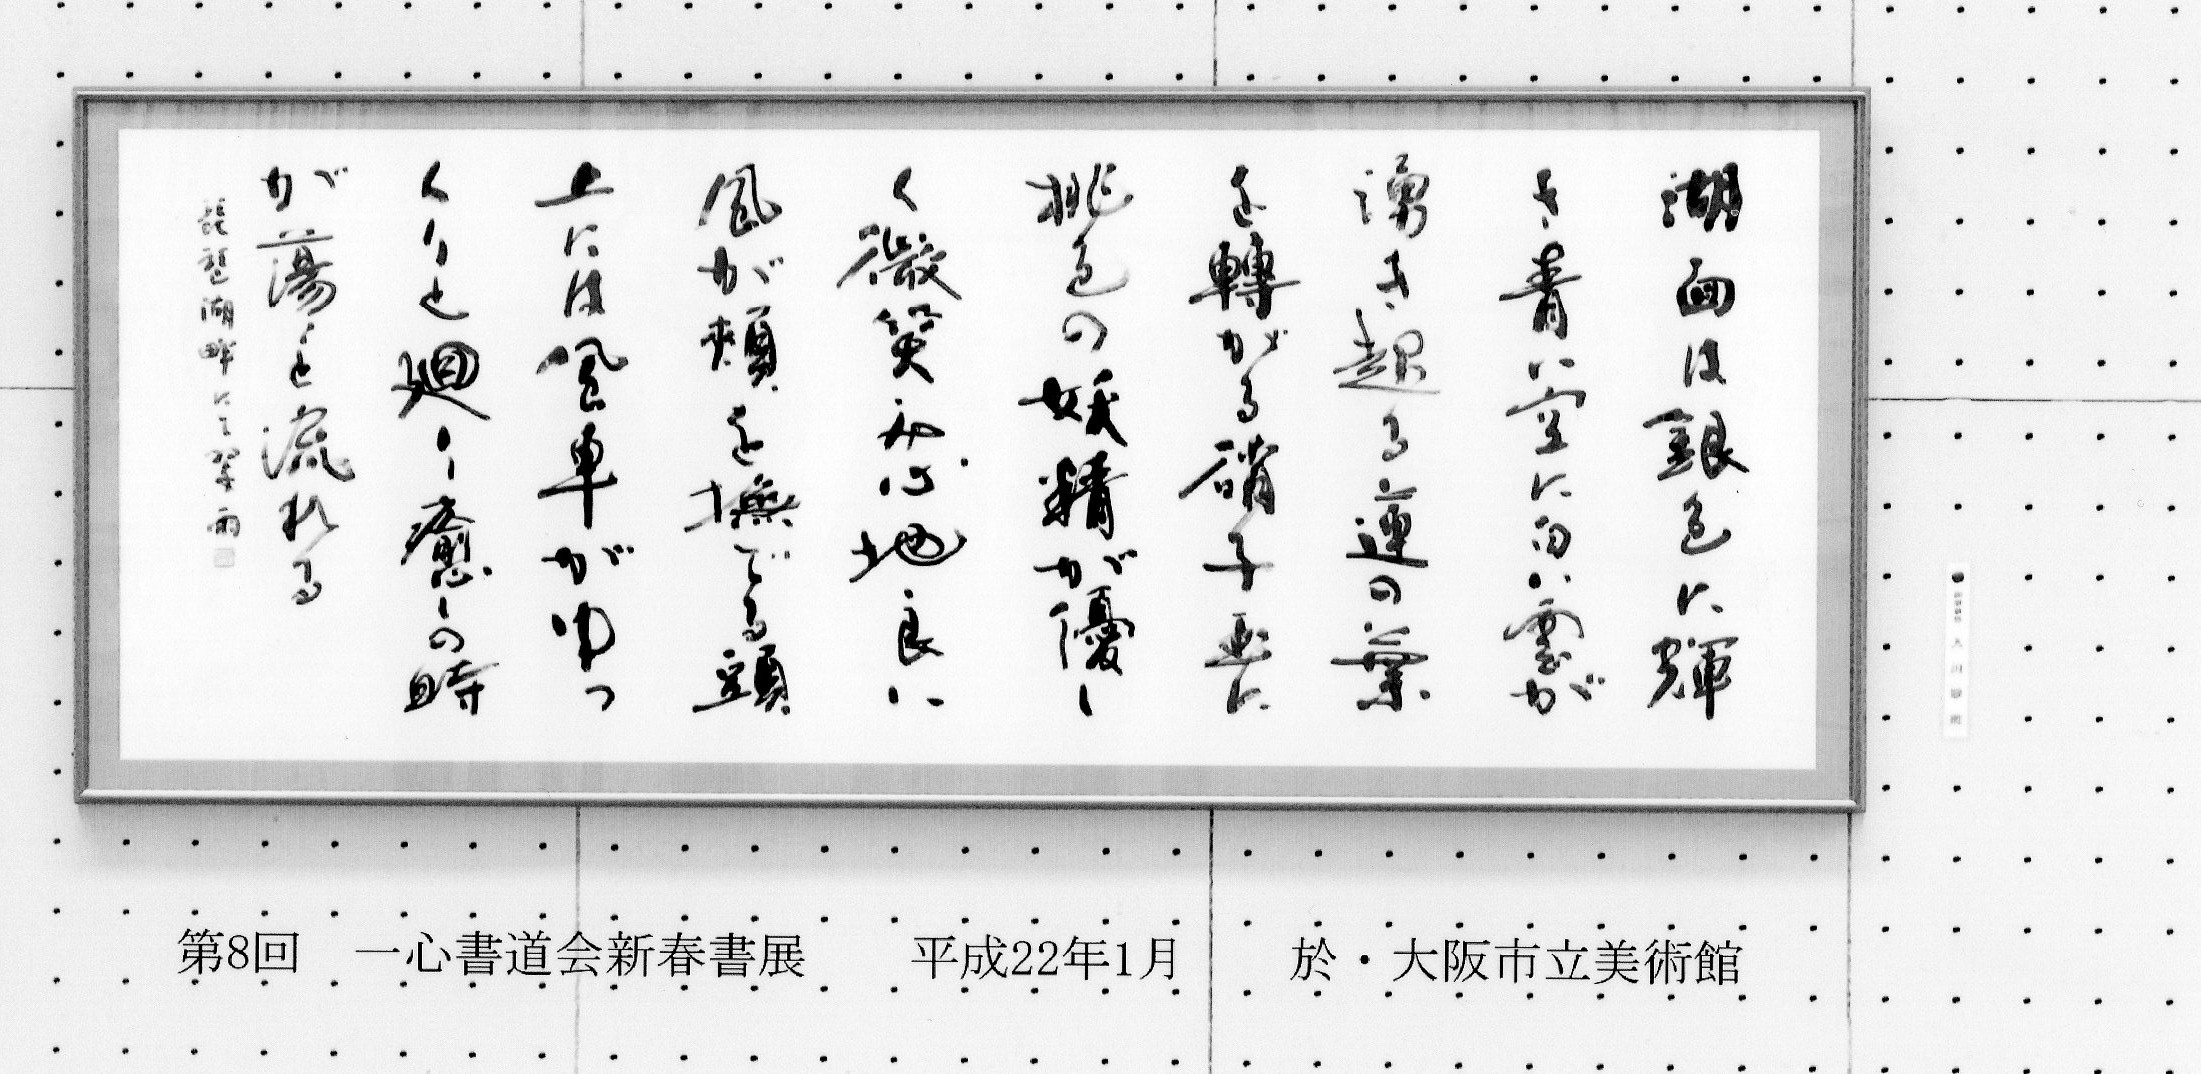 湖面は銀色に輝
き青い空に白い雲が
湧き起る蓮の葉
を轉がる硝子玉に
桃色の妖精が優し
く微笑み心地良い
風が頬を撫でる頭
上には風車がゆっ
くりと廻り癒しの時
が蕩々と流れる
琵琶湖畔にて 翠雨
第8回 一心書道会新春書展 平成22年1月 於・大阪市立美術館